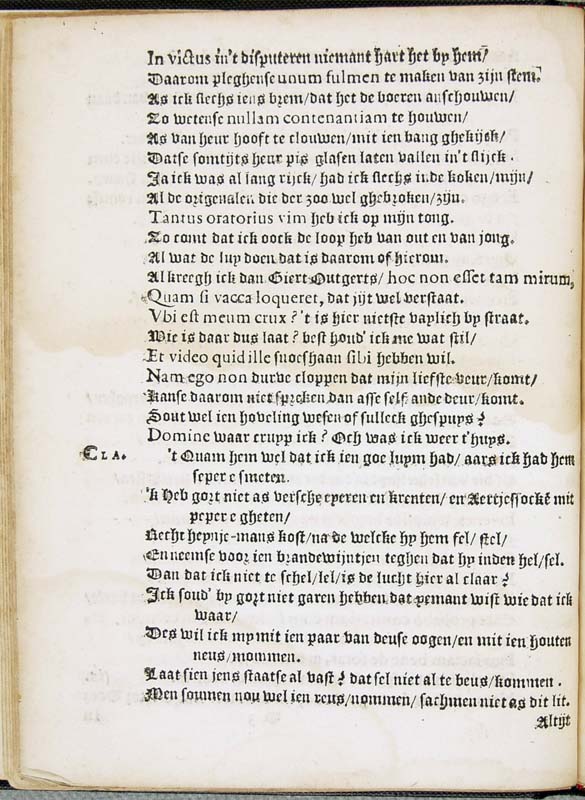 In victus in't disputeren niemant hart het by hem/
Daarom pleghense unum fulmen te maken van zijn stem.
As ick slechs iens brem/dat het de boeren anschouwen/
Zo wetense nullam contenantiam te houwen/
As van heur hooft te clouwen/mit ien bang ghekijck/
Datse somtijts heur pis glasen laten vallen in't slijck.
Ja ick was al lang rijck/had ick slechs inde koken/mijn/
Al de origenalen die der zoo wel ghebroken/zijn.
Tantus oratorius vim heb ick op mijn tong.
Zo comt dat ick oock de loop heb van out en van jong.
Al wat de luy doen dat is daarom of hierom.
Al kreegh ick dan Giert Outgerts/hoc non esset tam mirum,
Quam si vacca loqueret, dat jijt wel verstaat.
Vbi est meum crux? 't is hier nietste vaylich by straat.
Wie is daar dus laat? best houd' ick me wat stil/
Et video quid ille snoeshaan sibi hebben wil.
Nam ego non durve cloppen dat mijn liefste veur/komt/
Kanse daarom niet spreken dan asse self ande deur/komt.
Sout wel ien hoveling wesen of sulleck ghespuys?
Domine waar cruyp ick? Och was ick weer t'huys.
CLA. 't Quam hem wel dat ick ien goe luym had/aars ick had hem
seper e smeten.
'k Heb gort niet as versche eyeren en krenten/en Aertjessocké mit
peper e gheten/
Recht heynje-mans kost/na de welcke hy hem sel/stel/
En neemse voor ien brandewijntjen teghen dat hy inden hel/sel.
Dan dat ick niet te schel/lel/is de lucht hier al claar?
Ick soud' by gort niet garen hebben dat yemant wist wie dat ick
waar/
Des wil ick my mit ien paar van deuse oogen/en mit ien houten
neus/mommen.
Laat sien jens staatse al vast? dat sel niet al te beus/kommen.
Men souwen nou wel ien reus/nommen/sachmen niet as dit lit.
Altijt